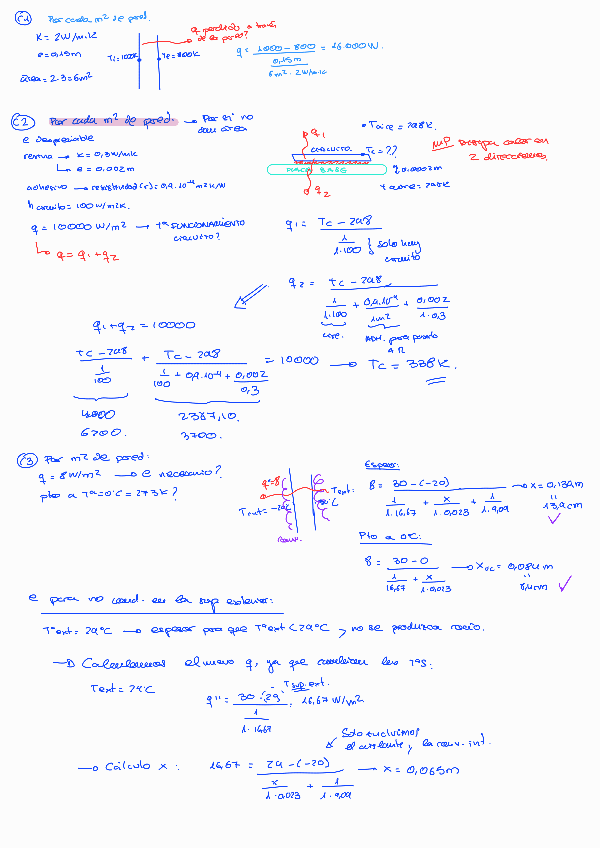 C1 Por cada m² de pared.
K = 2W/m·K
e = 0,15m
área = 2·3 = 6m²
Ti=1000K
Te=800K
q perdido a través de la pared?
q = 1000 - 800 / (0,15m / 6m²·2W/m·K) = 16.000W.
C2 Por cada m² de pared. → Por si no dan área
e despreciable
resina → K = 0,3W/mK
↳ e = 0.002m
adhesivo → resistividad (r) = 0,9·10⁻⁴ m²K/W
h circuito = 100 W/m²K.
q = 10000 W/m² → Tª FUNCIONAMIENTO CIRCUITO?
↳ q = q1 + q2
q1
• Taire = 298K
CIRCUITO
Tc = ??
0.002m
q2
Taire = 298K
MP Disipa calor en 2 direcciones.
q1 = Tc - 298 / (1 / 1·100) } solo hay circuito
q2 = Tc - 298 / (1 / 1·100 + 0,9·10⁻⁴ / 1m² + 0,002 / 1·0,3)
q1 + q2 = 10000
Tc - 298 / (1 / 100) + Tc - 298 / (1 / 100 + 0,9·10⁻⁴ + 0,002 / 0,3) = 10000 → Tc = 338K.
4000
2387,10.
6200.
3700.
C3 Por m² de pared:
q = 8W/m² → e necesario?
pto a Tª=0ºC = 273K?
q=8
Text:
Espesor:
8 = 30 - (-20) / (1 / 1·16,67 + x / 1·0,023 + 1 / 1·9,09) → x = 0,139m
"
13,9cm ✓
Pto a 0ºC:
8 = 30 - 0 / (1 / 16,67 + x / 1·0,023) → x0ºC = 0,084m
"
8,4cm ✓
e para no cond. en la sup exterior:
Tªext = 29ºC → espesor para que Tªext < 29ºC y no se produzca rocío.
→ Calculamos el nuevo q, ya que cambian las Tªs:
Text = 29ºC
T sup. ext.
q" = 30 - (29) / (1 / 1·16,67) : 16,67 W/m²
Solo incluimos el aislante y la conv. int.
→ Cálculo x: 16,67 = 29 - (-20) / (x / 1·0,023 + 1 / 1·9,09) → x = 0,065m